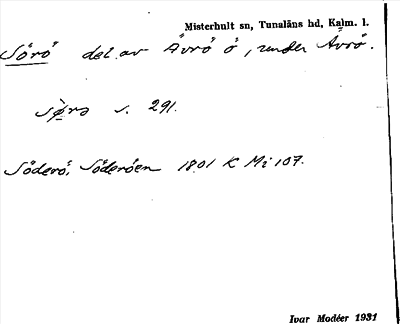 Misterhult sn, Tunaläns hd, Kalm. l.
Sörö del av Ävrö ö, under Ävrö.
Sø̀rə s. 291.
Söderö, Söderöen 1801 K Mi 107.
Ivar Modéer 1931